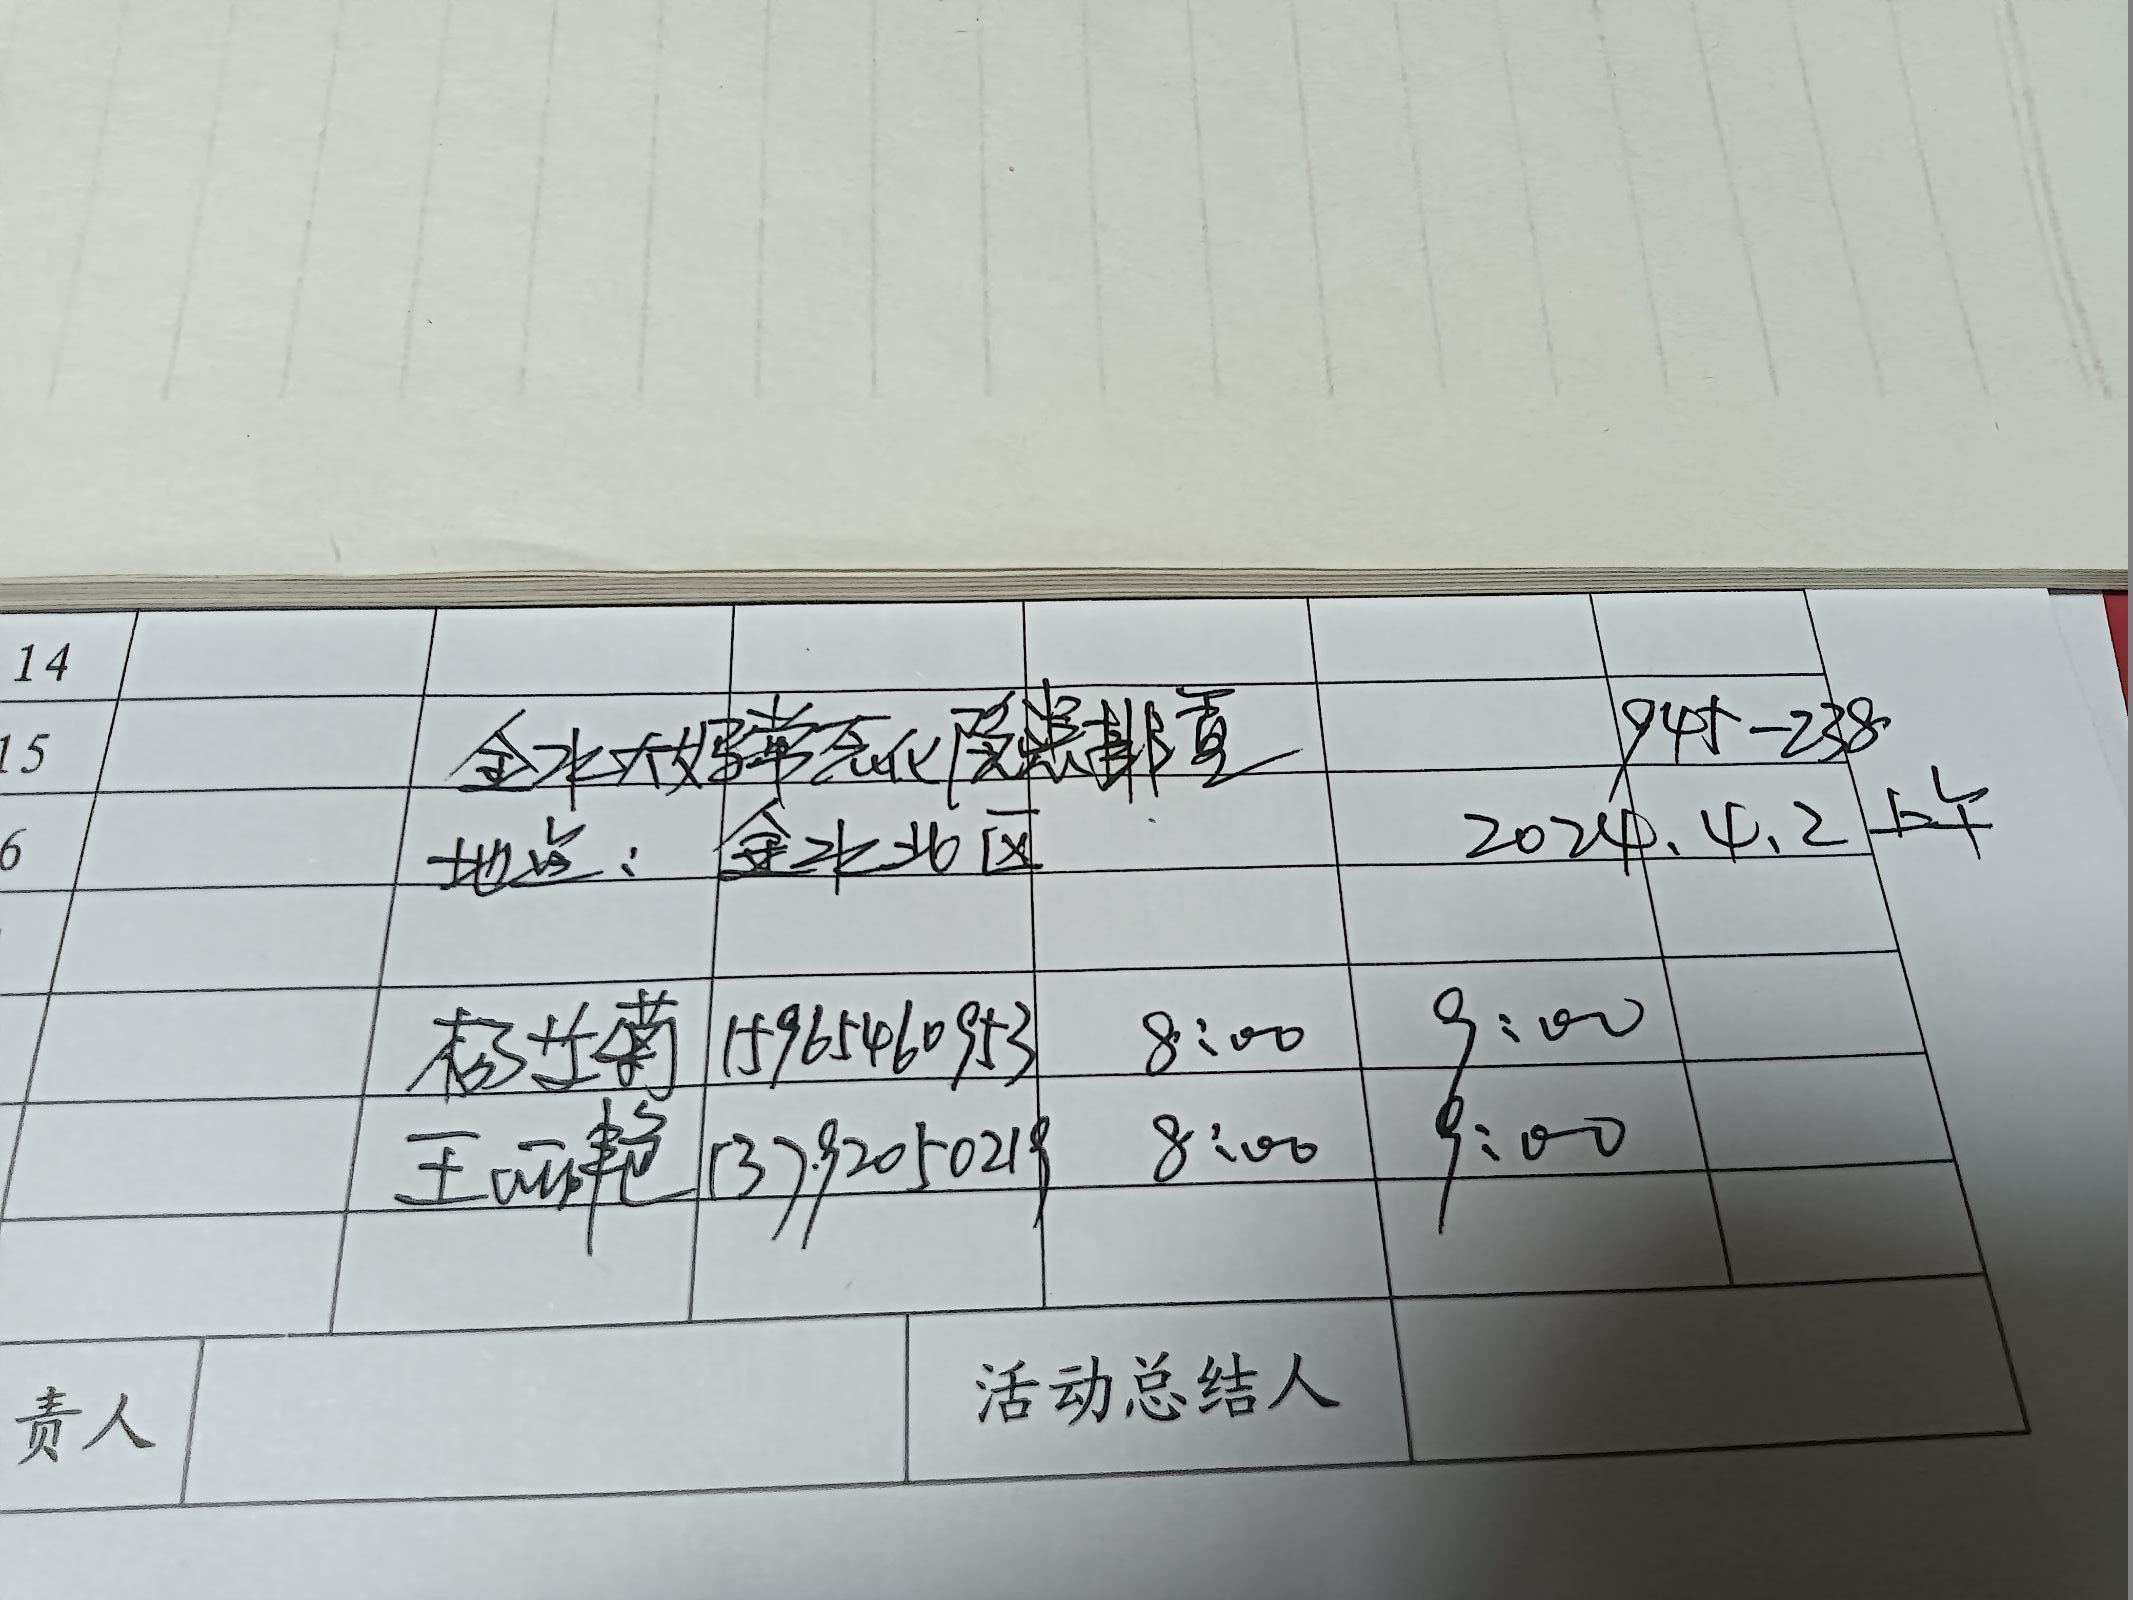 14
15 金水大妈常态化隐患排查 945-238
6 地点：金水北区 2024.4.2 上午
杨兰菊 15965460953 8:00 9:00
王丽艳 13792050219 8:00 9:00
责人 活动总结人